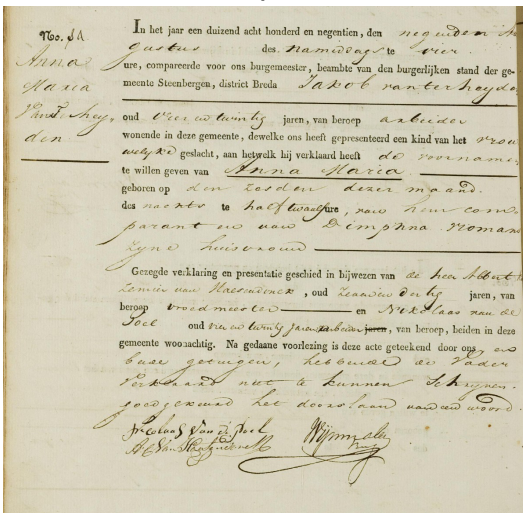 No. 51
Anna
Maria
Van Ter hey
den
In het jaar een duizend acht honderd en negentien, den negenden
gustus des namiddags te vier
ure, compareerde voor ons burgemeester, beambte van den burgerlijken stand der ge-
meente Steenbergen, district Breda Jakob van ter heyde
oud vier en twintig jaren, van beroep arbeider
wonende in deze gemeente, dewelke ons heeft gepresenteerd een kind van het vrou
welyke geslacht, aan hetwelk hij verklaard heeft de voorname
te willen geven van Anna Maria
geboren op den zesden dezer maand.
des nachts te half twaalf ure, van hem com
parant en van Dimphna Roman
zyne huisvrouw
Gezegde verklaring en presentatie geschied in bijwezen van de heer Albert
van , oud en dertig jaren, van
beroep vroedmeester en Nikolaas van de
Poel oud vier en twintig jaren arbeider jaren, van beroep, beiden in deze
gemeente woonachtig. Na gedaane voorlezing is deze acte geteekend door ons en
beide getuigen, hebbende de Vader
verklaard niet te kunnen Schryven.
goedgekeurd het doorslaan van een woord
Nicolaas Van de Poel